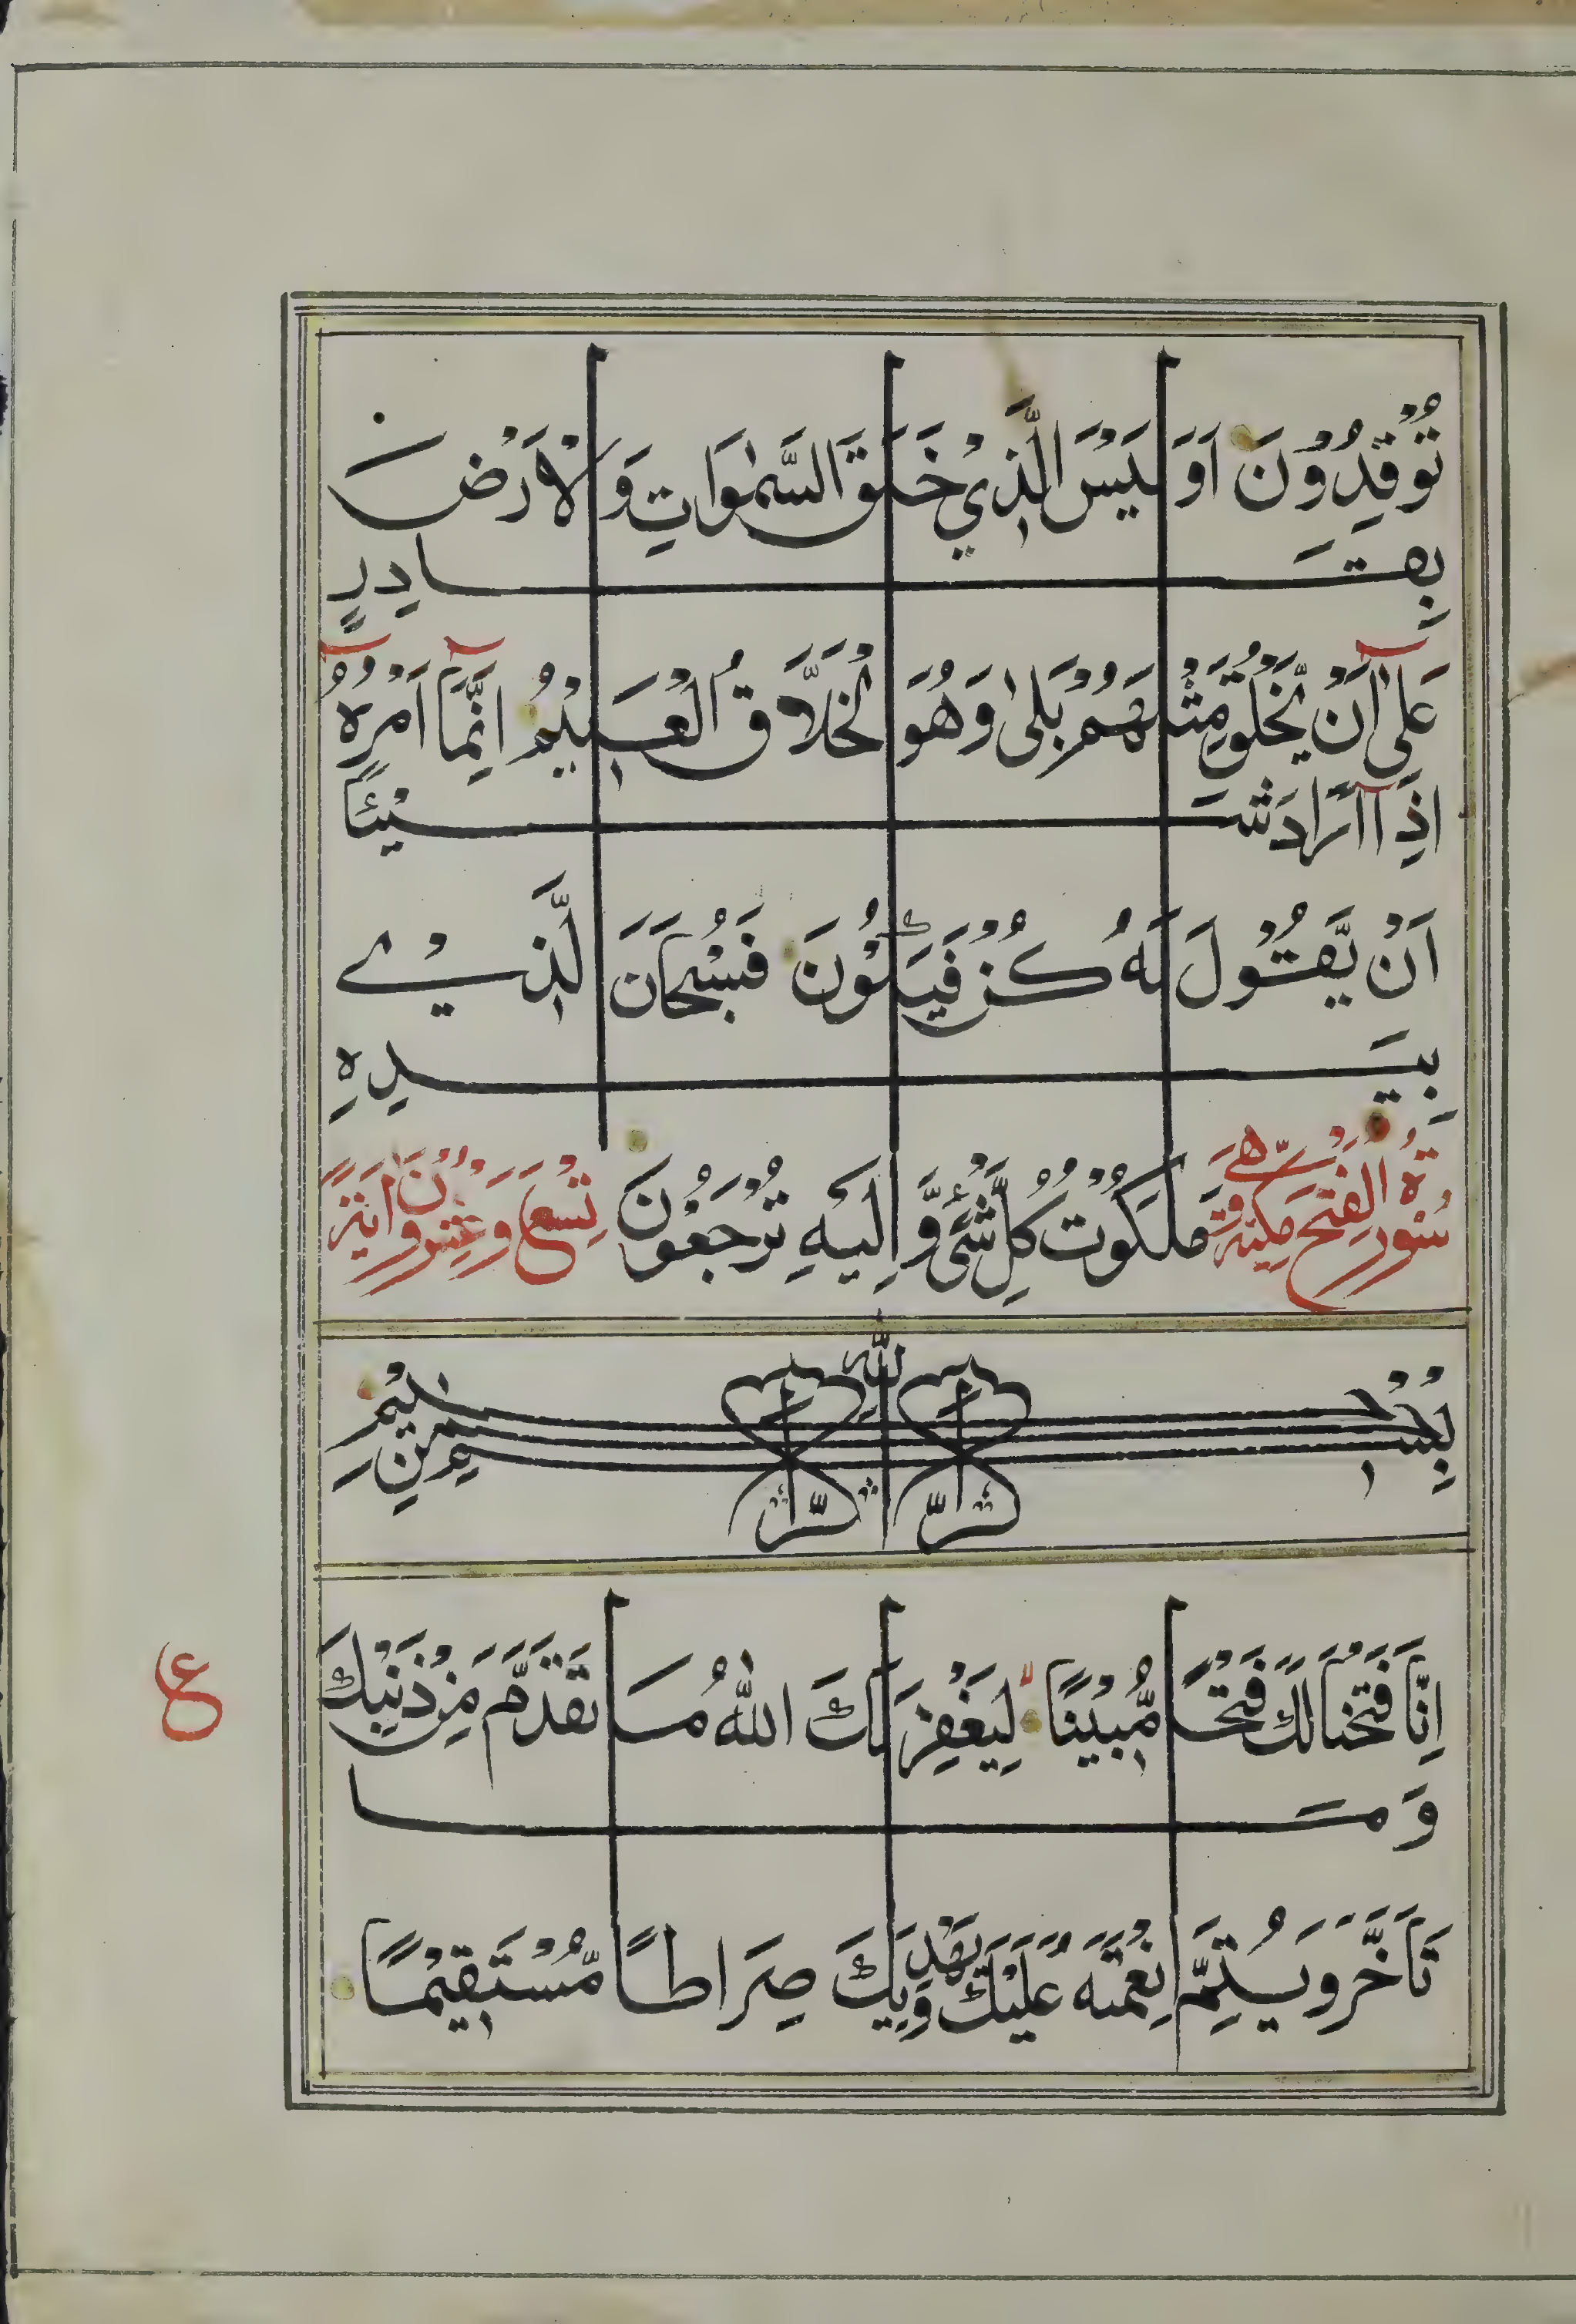 تُوْقِدُوْنَ اَوَلَيْسَ الَّذِيْ خَلَقَ السَّمٰوَاتِ وَالْاَرْضَ
بِقَادِرٍ
عَلٰٓى اَنْ يَّخْلُقَ مِثْلَهُمْ بَلٰى وَهُوَ الْخَلَّاقُ الْعَلِيْمُ اِنَّمَآ اَمْرُهٗٓ
اِذَآ اَرَادَ شَيْئًا
اَنْ يَّقُوْلَ لَهُ كُنْ فَيَكُوْنَ فَسُبْحَانَ الَّذِيْ
بِيَدِهِ
سُوْرَةُ الْفَتْحِ مَكِّيَّةٌ وَّهِيَ مَلَكُوْتُ كُلِّ شَيْءٍ وَّاِلَيْهِ تُرْجَعُوْنَ تِسْعَ وَعِشْرُوْنَ اٰيَةً
بِسْمِ اللّٰهِ الرَّحْمٰنِ الرَّحِيْمِ
اِنَّا فَتَحْنَا لَكَ فَتْحًا مُّبِيْنًا لِيَغْفِرَ لَكَ اللّٰهُ مَا تَقَدَّمَ مِنْ ذَنْبِكَ
ع
وَمَا
تَاَخَّرَ وَيُتِمَّ نِعْمَتَهُ عَلَيْكَ وَيَهْدِيَكَ صِرَاطًا مُّسْتَقِيْمًا